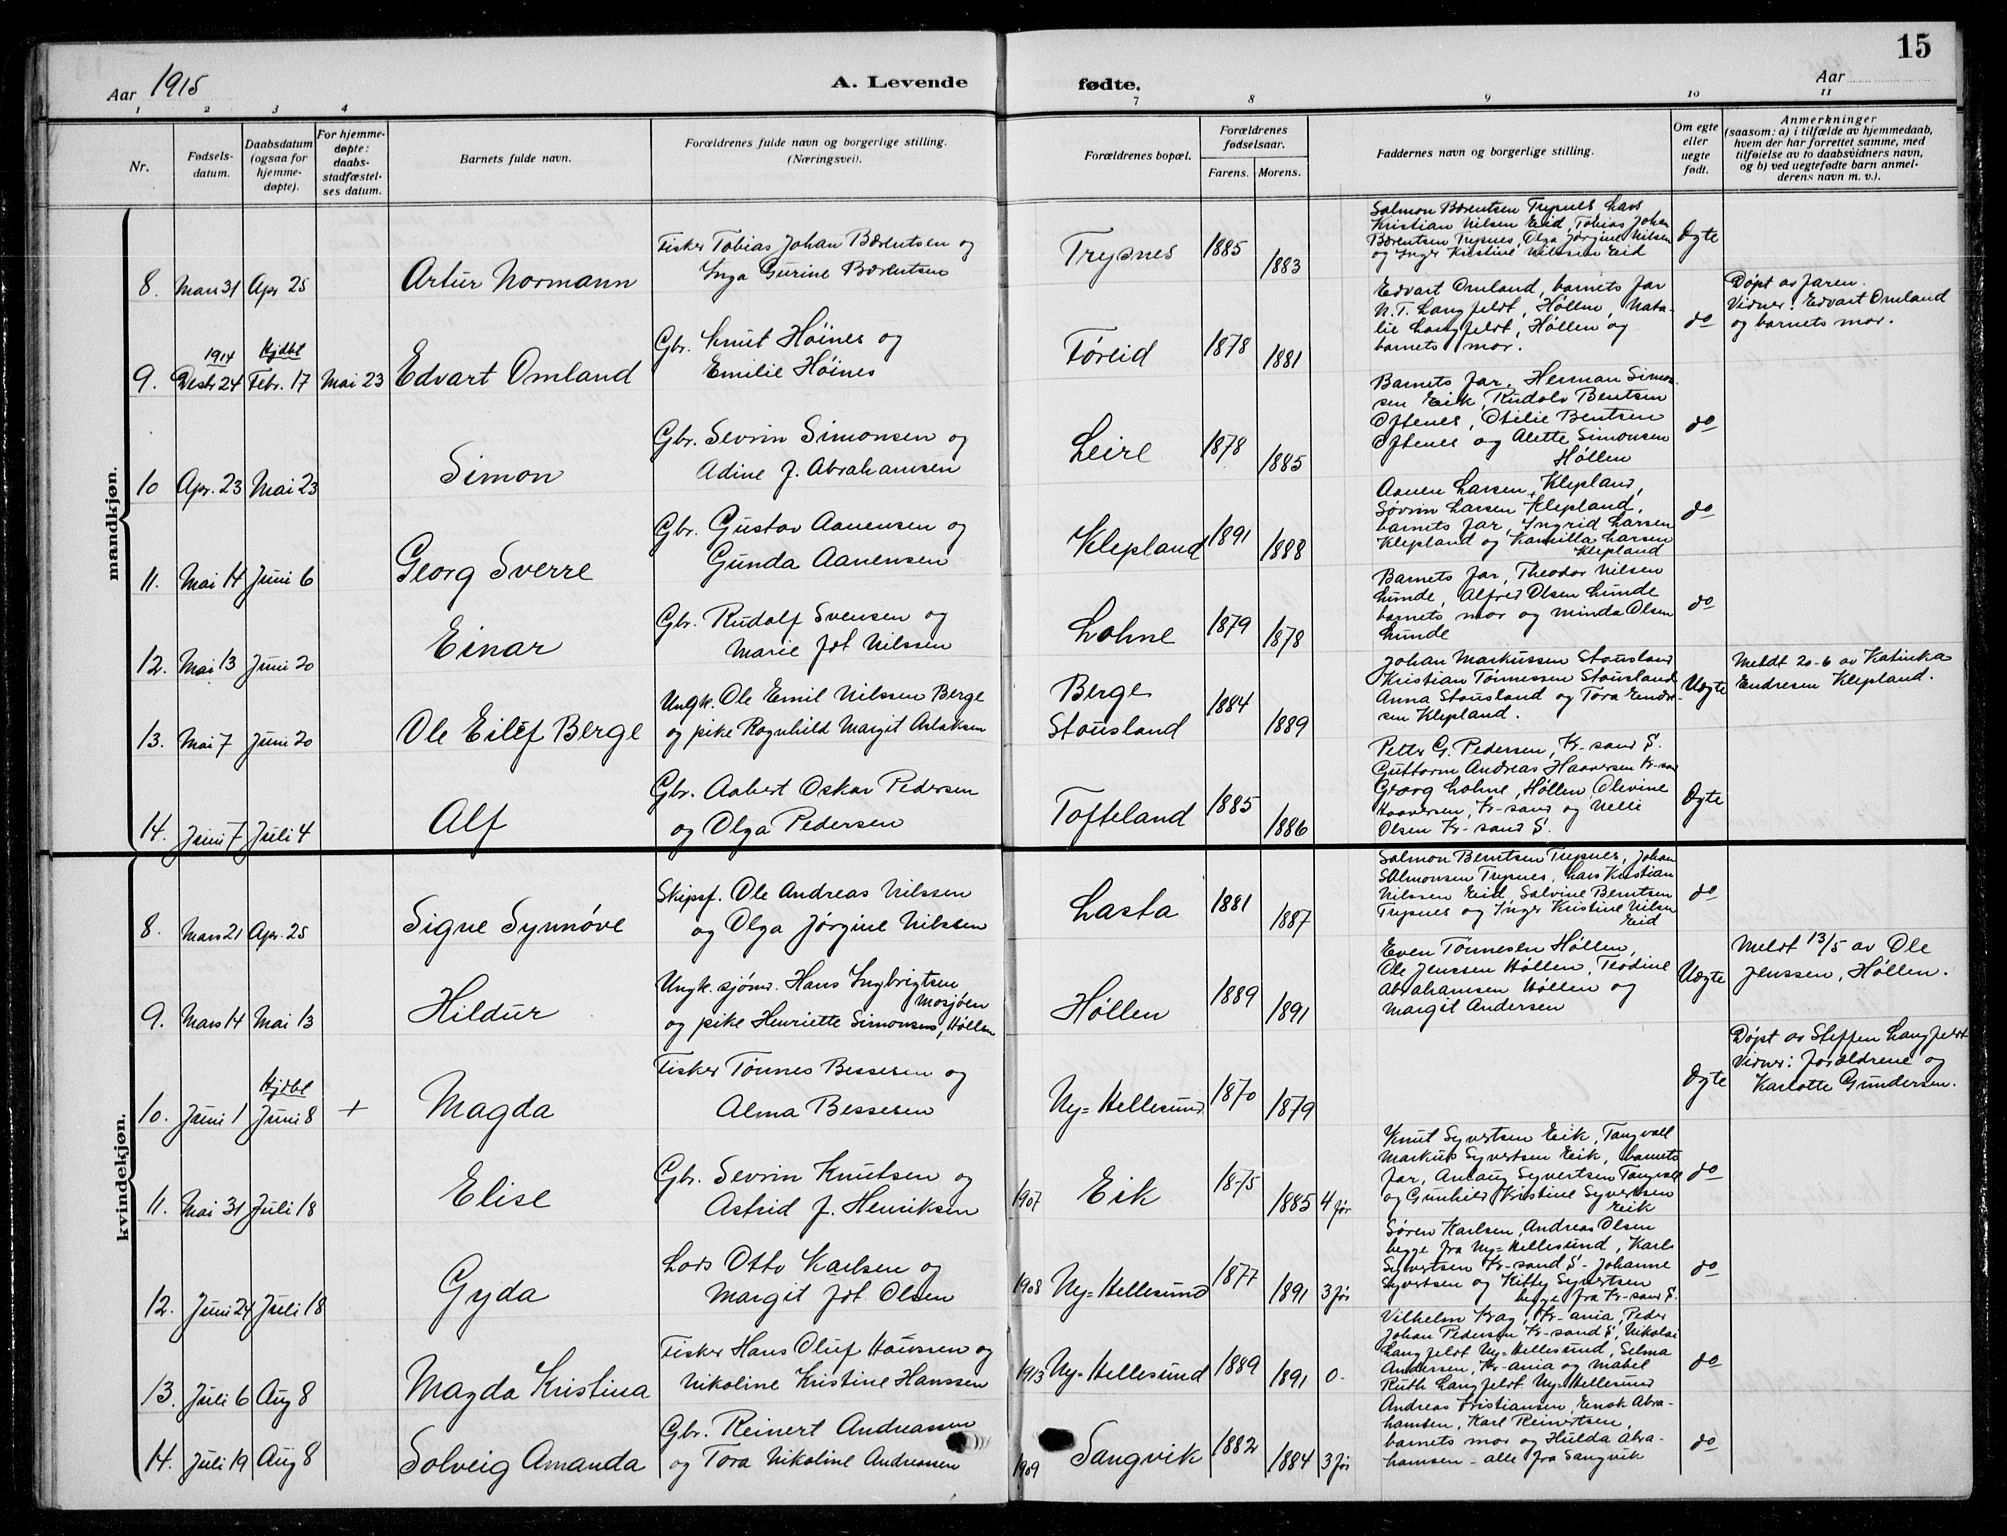 15
Aar 1915
A. Levende fødte.
Aar
1 2 3 4 7 8 9 10 11
Nr.
Fødsels-
datum.
Daabsdatum
(ogsaa for
hjemme-
døpte).
For hjemme-
døpte:
daabs-
stadfæstel-
ses datum.
Barnets fulde navn.
Forældrenes fulde navn og borgerlige stilling.
(Næringsvei).
Forældrenes bopæl.
Forældrenes
fødselsaar.
Farens. Morens.
Faddernes navn og borgerlige stilling.
Om egte
eller
uegte
født.
Anmerkninger
(saasom: a) i tilfælde av hjemmedaab,
hvem der har forrettet samme, med
tilføielse av to daabsvidners navn,
og b) ved uegtefødte barn anmel-
derens navn m. v.).
mandkjøn.
8. Mars 31 Apr 25 Artur Normann
Fisker Tobias Johan Bærentsen og
Inga Gurine Bærentsen
Trysnes 1885 1883
Salmon Bærentsen Trysnes Lars
Kristian Nilsen Eid, Tobias Johan
Bærentsen Trysnes, Olga Jørgine Nilsen
og Inger Kristine Nilssen Eid
Ægte
9. 1914 Desbr 24 Hjdbt Febr. 17 Mai 23 Edvart Omland
Gbr. Knut Höines og
Emilie Höines
Føreid 1878 1881
Edvart Omland, barnets far
N. T. Langfeldt, Høllen, Nata-
lie Langfeldt, Høllen og
barnets mor.
do
Døpt av faren.
Vidner: Edvart Omland
og barnets mor.
10 Apr. 23 Mai 23 Simon
Gbr. Sevrin Simonsen og
Adine f. Abrahamsen
Leire 1878 1885
Barnets far, Herman Simon-
sen Eik, Rudolv Bentsen
Oftenes, Otilie Bentsen
Oftenes og Alette Simonsen
Høllen
do
11. Mai 14 Juni 6 Georg Sverre
Gbr. Gustav Aanensen og
Gunda Aanensen
Klepland 1891 1888
Aanen Larsen, Klepland,
Søvrin Larsen Klepland,
barnets far, Ingrid Larsen
Klepland og Kamilla Larsen
Klepland
do
12. Mai 13 Juni 20 Einar
Gbr. Rudolf Svensen og
Marie fdt Nilssen
Lohne 1879 1878
Barnets far, Theodor Nilsen
Lunde, Alfred Olsen Lunde
barnets mor og Minda Olsen
Lunde
do
13. Mai 7 Juni 20 Ole Eilef Berge
Ungk. Ole Emil Nilssen Berge
og pike Ragnhild Margit Aslaksen
Berge
Stousland 1884 1889
Johan Markussen Stousland
Kristian Tönnessen Stousland
Anna Stousland og Tora Endre-
sen Klepland.
Uægte
Meldt 20-6 av Katinka
Endresen Klepland.
14. Juni 7 Juli 4 Alf
Gbr. Aabert Oskar Pedersen
og Olga Pedersen
Tofteland 1885 1886
Petter G. Pedersen, Kr-sand S.
Guttorm Andreas Haaversen Kr-sa
Georg Lohne, Høllen, Olevine
Haaversen, Kr-sand og Nelli
Olsen Kr-sand S.
Ægte
kvindekjøn.
8. Mars 21 Apr. 25 Signe Synnöve
Skipsf. Ole Andreas Nilssen
og Olga Jørgine Nilssen
Lasta 1881 1887
Salmon Berntsen Trysnes, Johan
Salmonsen Trysnes, Lars Kristian
Nilssen Eid, Salvine Berntsen
Trysnes og Inger Kristine Nilsen
Eid
do
9. Mars 14 Mai 13 Hildur
Ungk. sjöm. Hans Ingbrigtsen
Mosjöen
og pike Henriette Simonsens, Høllen
Høllen 1889 1891
Even Tönnesen Høllen,
Ole Jenssen Høllen, Teodine
Abrahamsen Høllen og
Margit Andersen
Uægte
Meldt 13/5 av Ole
Jenssen, Høllen.
10. Juni 1 Hjdbt Juni 8 + Magda
Fisker Tönnes Bessesen og
Alma Bessesen
Ny=Hellesund 1870 1879
Ægte
Døpt av Steffen Langfeldt
Vidner: forældrene og
Karlotte Gundersen.
11. Mai 31 Juli 18 Elise
Gbr. Sevrin Knutsen og
Astrid f. Henriksen
1907 Eik 1875 1885 4 før
Knut Syvertsen Eik, Tangvall
Markus Syvertsen Eik, barnets
far, Anlaug Syvertsen Tangvall
og Gunhild Kristine Syvertsen
Eik
do
12. Juni 24 Juli 18 Gyda
Lods Otto Karlsen og
Margit fdt. Olsen
1908 Ny=Hellesund 1877 1891 3 før
Søren Karlsen, Andreas Olsen
begge fra Ny=Hellesund, Karl
Syvertsen Kr-sand S- Johanne
Syvertsen og Kitty Syvertsen
begge fra Kr-sand S.
do
13. Juli 6 Aug 8 Magda Kristina
Fisker Hans Oluf Hanssen og
Nikoline Kristine Hanssen
1913 Ny=Hellesund 1889 1891 0-
Vilhelm Krag, Kr-ania, Peder
Johan Pedersen Kr-sand S, Nikolai
Langfeldt Ny=Hellesund, Selma
Andersen, Kr-ania og Mabel
Ruth Langfeldt Ny=Hellesund
do
14. Juli 19 Aug 8 Solveig Amanda
Gbr. Reinert Andreassen
og Tora Nikoline Andreasen
1909 Sangvik 1882 1884 3 før
Andreas Kristiansen, Enok Abra-
hamsen, Karl Reinertsen,
barnets mor og Hulda Abra-
hamsen - alle fra Sangvik
do